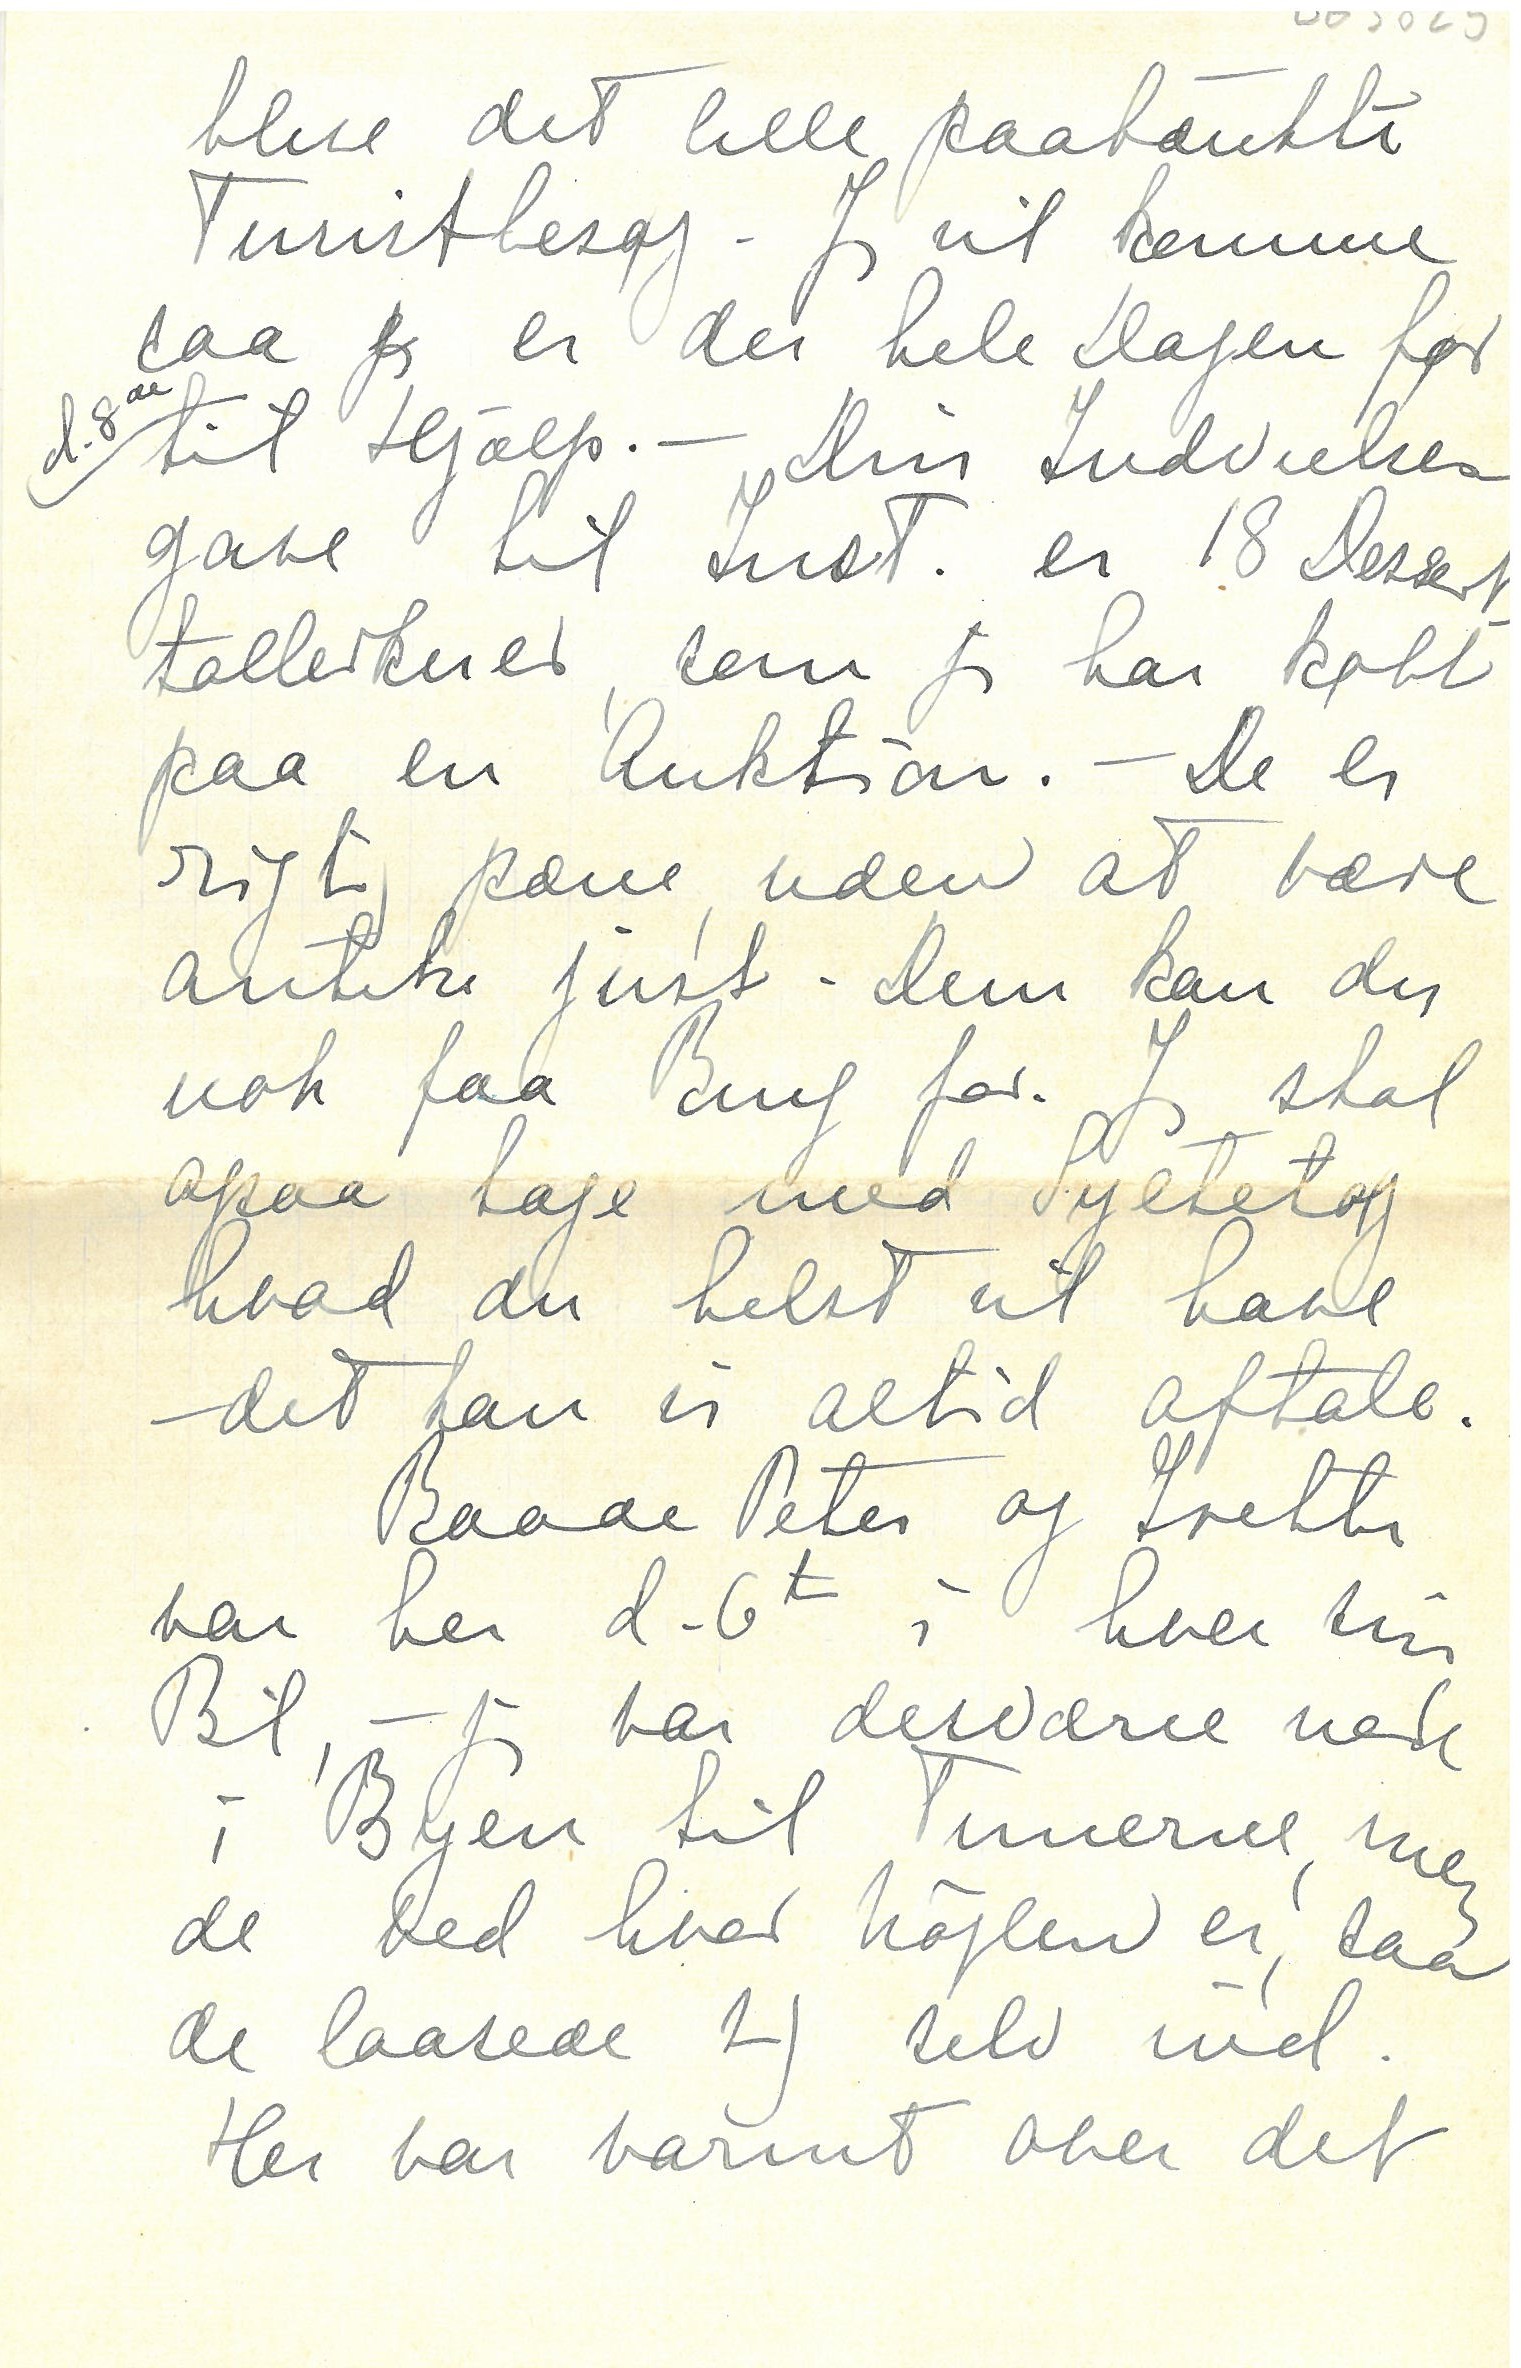 blive det lille paatænkte
Turistbesøg - Jg vil komme
saa jg er der hele Dagen før
d. 8de til Hjælp. — Min Indvielses
gave til Inst. er 18 Dessert
tallerkner, som jg har købt
paa en Auktion. — De er
rigtig pæne, uden at være
antike just - Dem kan du
nok faa Brug for. Jg skal
ogsaa tage med Syltetøj
hvad du helst vil have
— det kan vi altid aftale.
Baade Peter og Ivette
var her d. 6t i hver sin
Bil, — jg var desværre nede
i Byen til Timerne, men
de ved hvor Nøglen er, saa
de laasede sig selv ind.
Her var varmt over det